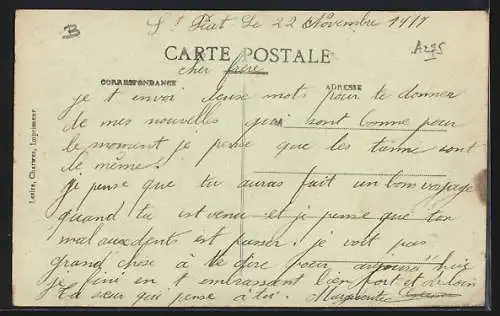 B
St Piat Le 22 Novembre 1911
A295
CARTE POSTALE
cher frère
CORRESPONDANCE
ADRESSE
je t envoi deuse mots pour te donner
de mes nouvelles qui sont bonne pour
le moment je pense que les tienne sont
de même.
je pense que tu auras fait un bon voyage
quand tu ist venu et je pense que ton
mal aux dents est passer. je voit pas
grand chose à te dire pour aujourd'huis
je fini en t embrassant bien fort et de loin
Ta sœur qui pense à toi. Marguerite
Lester, Chartres, Imprimeur